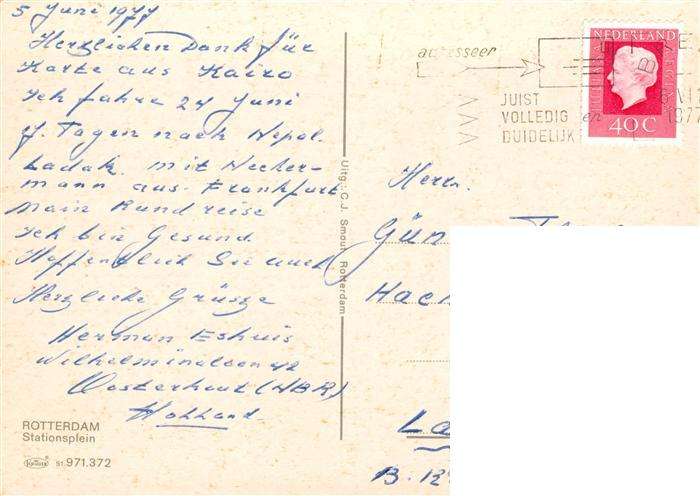 5 Juni 1977
Herzlichen Dank für
Karte aus Kairo
Ich fahre 24 Juni
Tagen nach Nepal.
Ladak. mit Necker-
mann aus. Frankfurt
Main Rundreise
Ich bin Gesund
Hoffentlich Sie auch
Herzliche Grüsze
Herman Eshuis
Wilhelminalaan 42
Oosterhout (NBR)
Holland.
ROTTERDAM
Stationsplein
51.971.372
Uitg.: C.J. Smout, Rotterdam
adresseer
JUIST
VOLLEDIG en
DUIDELIJK
1977
NEDERLAND
40C
Herrn.
Gün
Hach
La